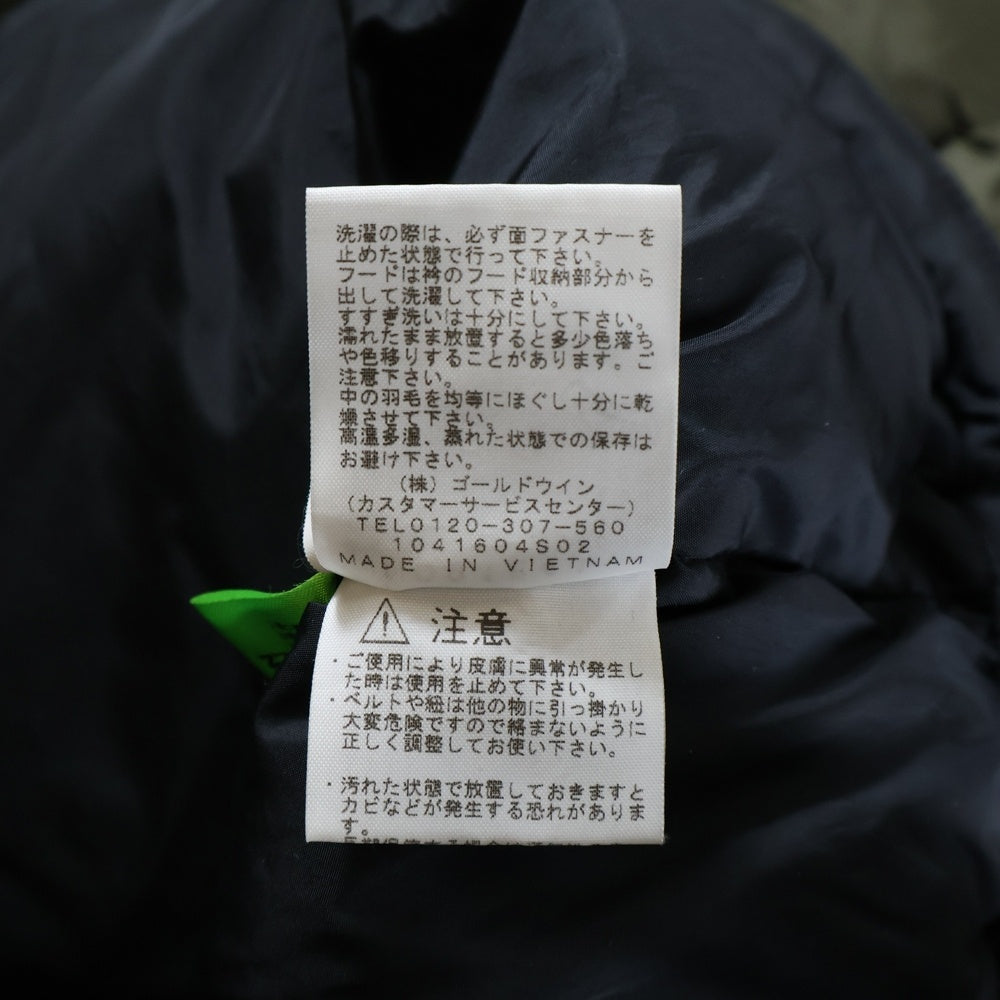 洗濯の際は、必ず面ファスナーを
止めた状態で行って下さい。
フードは衿のフード収納部分から
出して洗濯して下さい。
すすぎ洗いは十分にして下さい。
濡れたまま放置すると多少色落ち
や色移りすることがあります。ご
注意下さい。
中の羽毛を均等にほぐし十分に乾
燥させて下さい。
高温多湿、蒸れた状態での保存は
お避け下さい。
（株）ゴールドウイン
（カスタマーサービスセンター）
TEL0120-307-560
1041604S02
MADE IN VIETNAM
注意
・ご使用により皮膚に異常が発生し
た時は使用を止めて下さい。
・ベルトや紐は他の物に引っ掛かり
大変危険ですので絡まないように
正しく調整してお使い下さい。
・汚れた状態で放置しておきますと
カビなどが発生する恐れがありま
す。